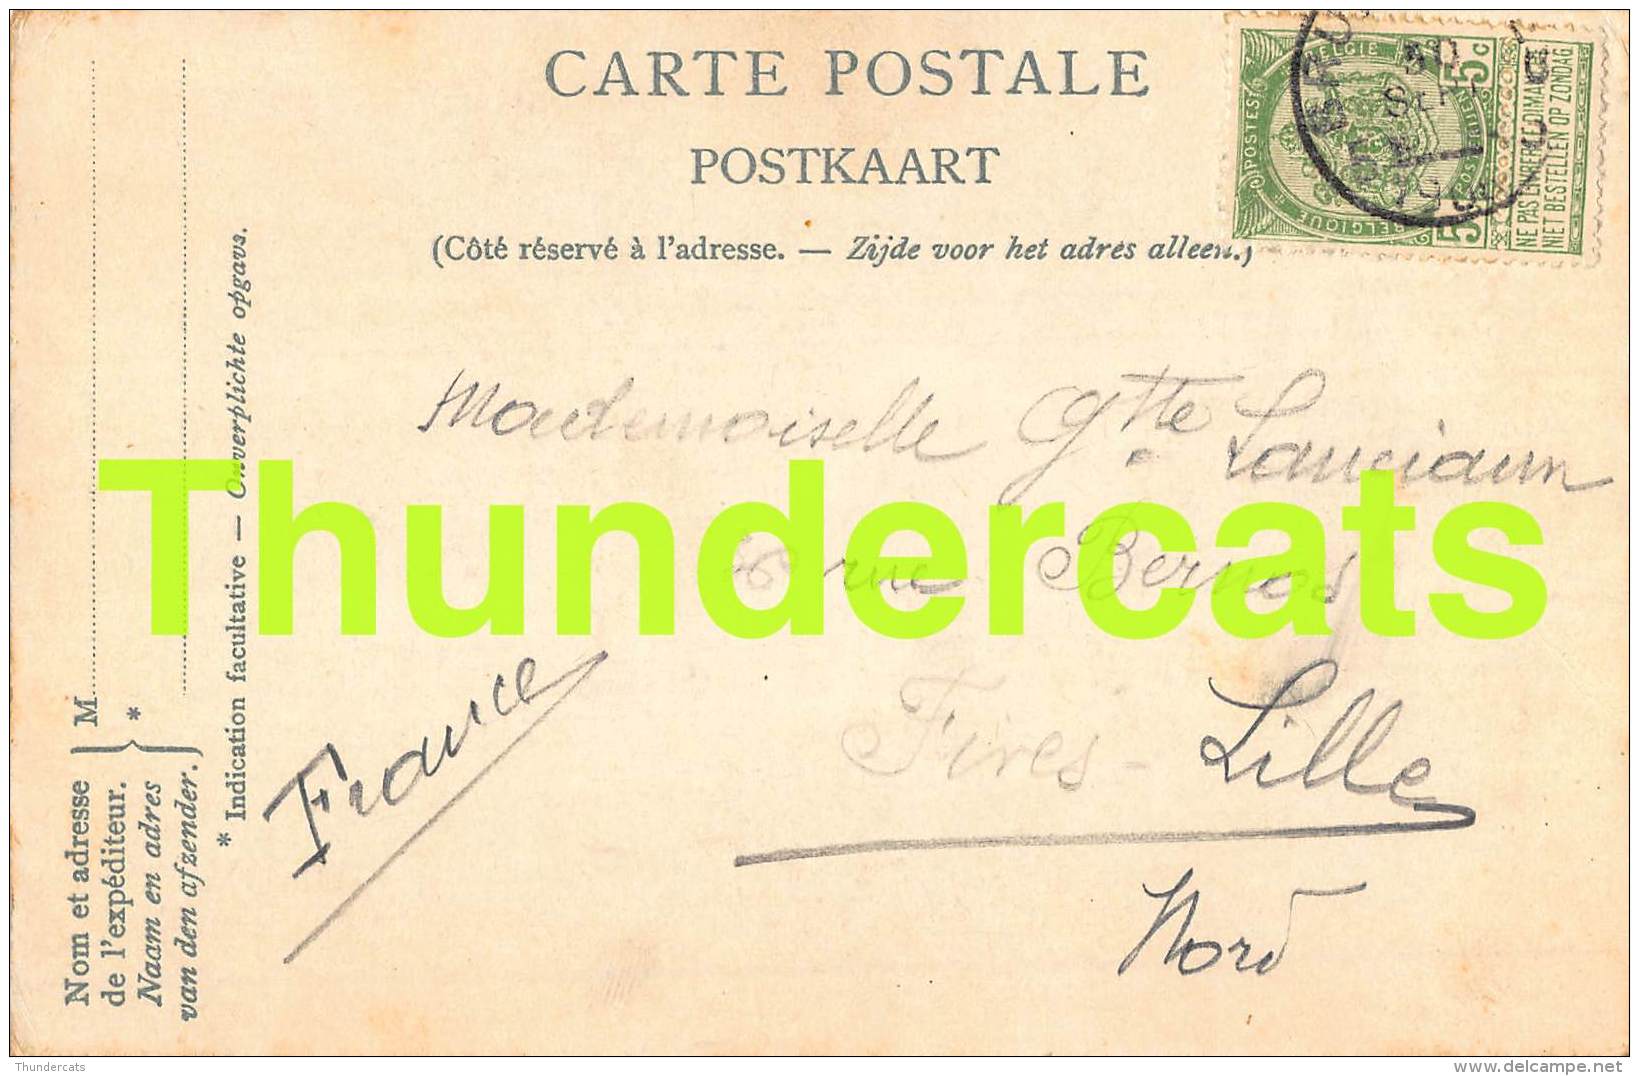 CARTE POSTALE
POSTKAART
(Côté réservé à l'adresse. — Zijde voor het adres alleen.)
BELGIE
POSTES
BELGIQUE
POSTERIJEN
5 c
5
NE PAS LIVRER LE DIMANCHE
NIET BESTELLEN OP ZONDAG
Mademoiselle Gtte
rue Bernos
Fives - Lille
Nord
France
Nom et adresse
de l'expéditeur.
Naam en adres
van den afzender.
M
*
* Indication facultative — Onverplichte opgave.
Thundercats
Thundercats
delcampe.net